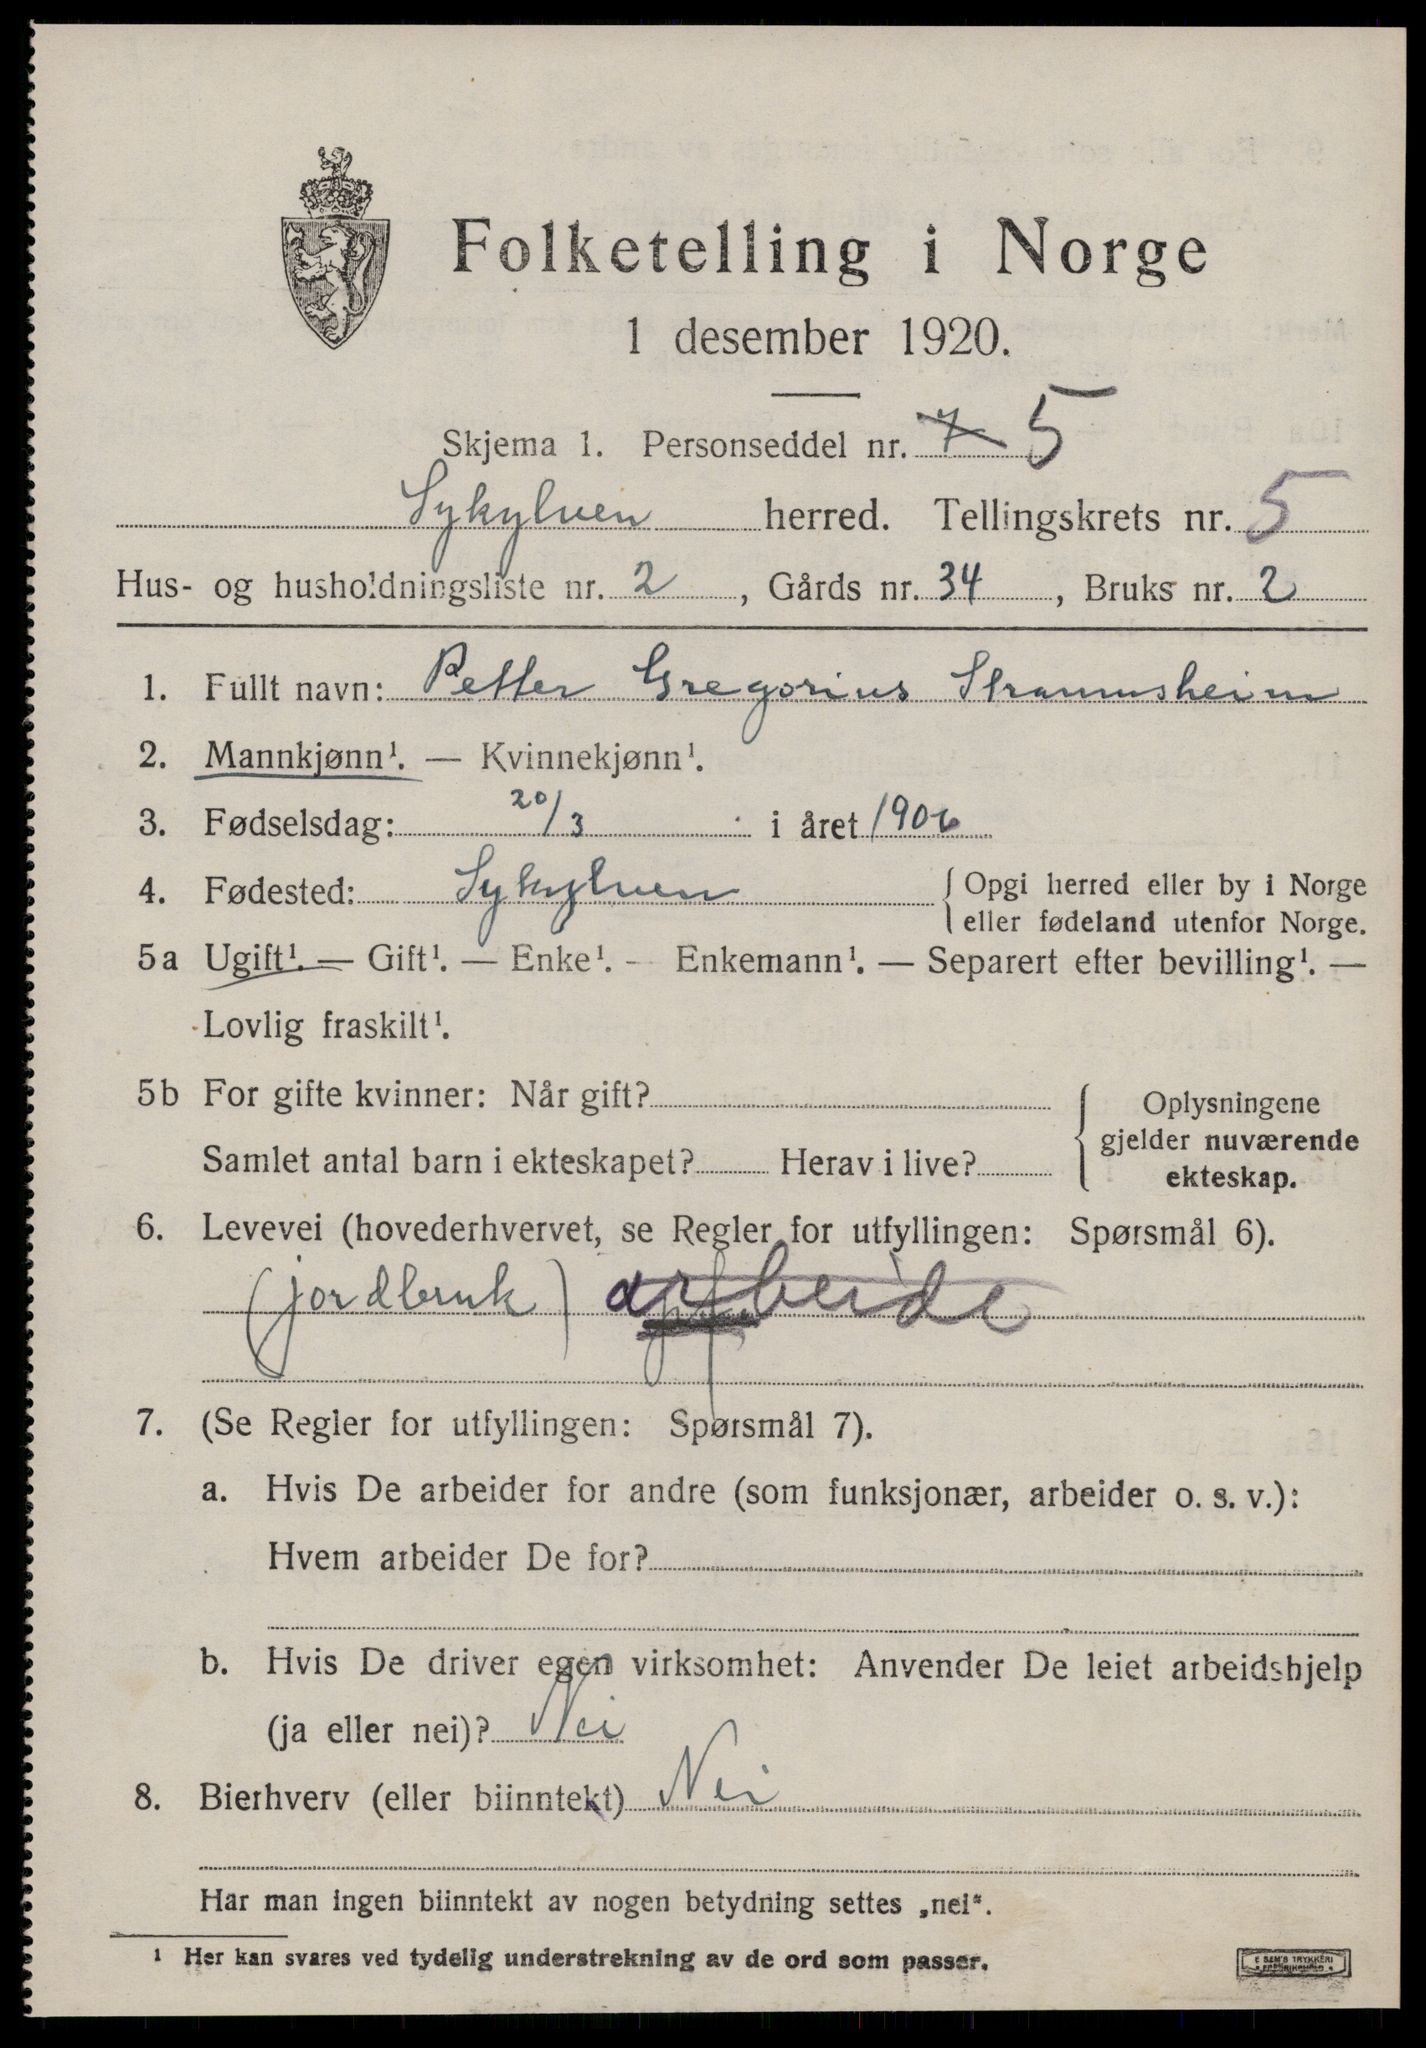 Folketelling i Norge
1 desember 1920.
Skjema 1. Personseddel nr. 7 5
Sykylven herred. Tellingskrets nr. 5
Hus- og husholdningsliste nr. 2, Gårds nr. 34, Bruks nr. 2
1. Fullt navn: Petter Gregorius Straumsheim
2. Mannkjønn¹. — Kvinnekjønn¹.
3. Fødselsdag: 20/3 i året 1906
4. Fødested: Sykylven { Opgi herred eller by i Norge
eller fødeland utenfor Norge.
5a Ugift¹. — Gift¹. — Enke¹. - Enkemann¹. — Separert efter bevilling¹. —
Lovlig fraskilt¹.
5b For gifte kvinner: Når gift?
Samlet antal barn i ekteskapet? Herav i live?
{ Oplysningene
gjelder nuværende
ekteskap.
6. Levevei (hovederhvervet, se Regler for utfyllingen: Spørsmål 6).
(jordbruk) arbeide
7. (Se Regler for utfyllingen: Spørsmål 7).
a. Hvis De arbeider for andre (som funksjonær, arbeider o. s. v.):
Hvem arbeider De for?
b. Hvis De driver egen virksomhet: Anvender De leiet arbeidshjelp
(ja eller nei)? Nei
8. Bierhverv (eller biinntekt) Nei
Har man ingen biinntekt av nogen betydning settes „nei“.
¹ Her kan svares ved tydelig understrekning av de ord som passer.